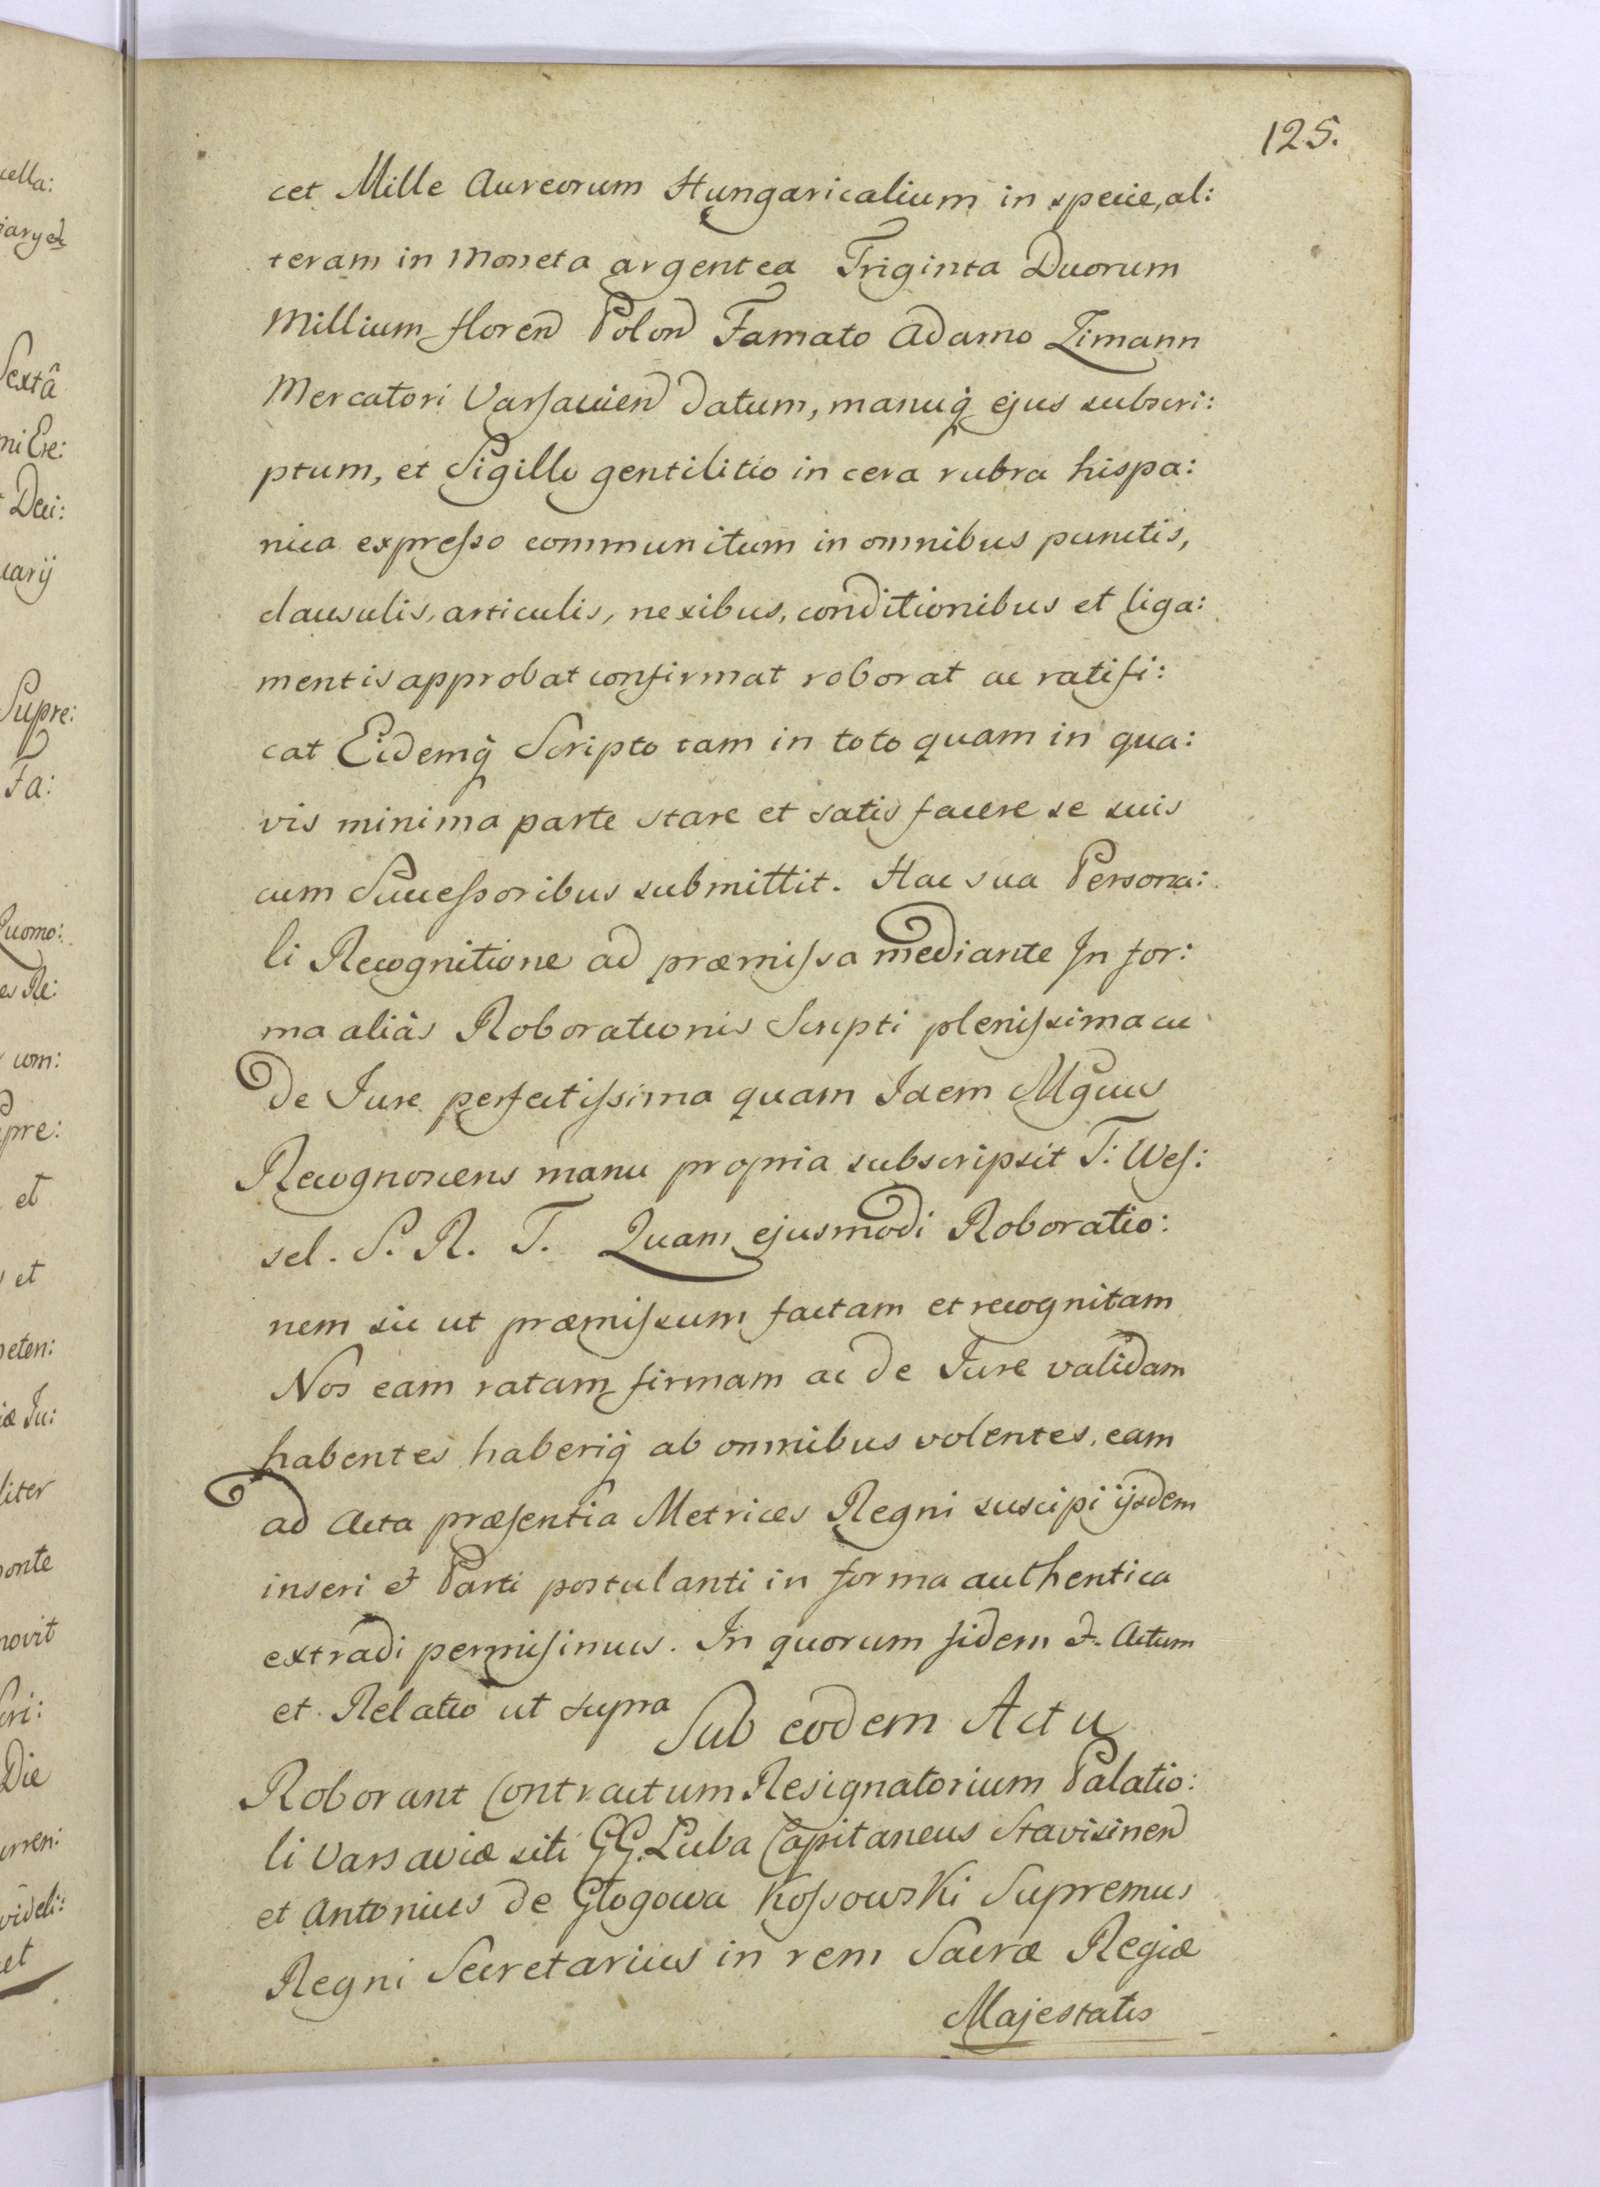 125.
cet Mille Aureorum Hungaricalium in specie, al:
teram in Moneta argentea Triginta Duorum
Millium floren Polon Famato Adamo Zimann
Mercatori Varsavien datum, manuq ejus subscri:
ptum, et Sigillo gentilitio in cera rubra hispa:
nica expresso communitum in omnibus punctis,
clausulis, articulis, nexibus, conditionibus et liga:
mentis approbat confirmat roborat ac ratifi:
cat Eidemq Scripto tam in toto quam in qua:
vis minima parte stare et satis facere se suis
cum Successoribus submittit. Hac sua Persona:
li Recognitione ad præmissa mediante In for:
ma aliàs Roborationis Scripti plenissima ac
de Jure perfectissima quam Idem Mgcus
Recognoscens manu propria subscripsit T: Wes:
sel. S. R. T. Quam ejusmodi Roboratio:
nem sic ut præmissum factam et recognitam
Nos eam ratam firmam ac de Jure validam
habentes haberiq ab omnibus volentes, eam
ad Acta præsentia Metrices Regni suscipi ijsdem
inseri et Parti postulanti in forma authentica
extradi permisimus. In quorum fidem &. Actum
et Relatio ut supra
Sub eodem Actu
Roborant Contractum Resignatorium Palatio:
li Varsaviæ siti GG. Luba Capitaneus Stavisinen
et Antonius de Glogowa Kossowski Supremus
Regni Secretarius in rem Sacræ Regiæ
Majestatis
cella:
Sextâ
ni Ere:
Deci:
uarij
Supre:
Fa:
Quomo:
es Re:
com:
pre:
et
et
peten:
iæ Ju:
liter
ponte
novit
Die
videli:
et